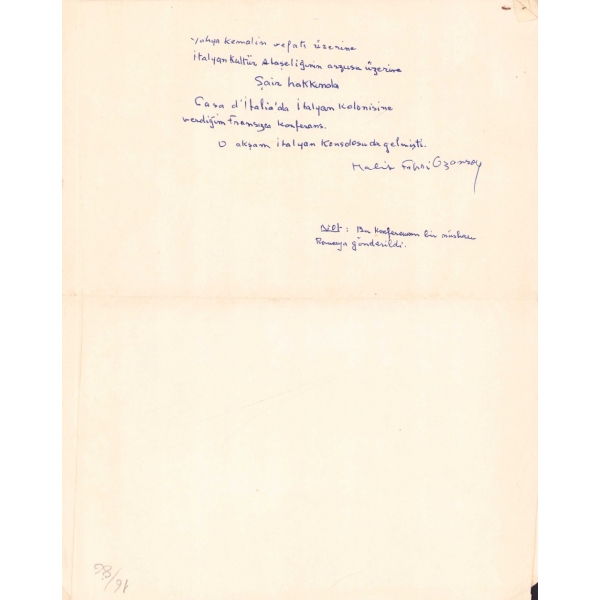 Yahya Kemalin vefatı üzerine
İtalyan Kültür Ataşeliğinin arzusu üzerine
Şair hakkında
Casa d'İtalia'da İtalyan Kolonisine
verdiğim Fransızca Konferans.
O akşam İtalyan Konsolosu da gelmişti.
Halit Fahri Ozansoy
Not: Bu konferansın bir nüshası
Romaya gönderildi.
16/86